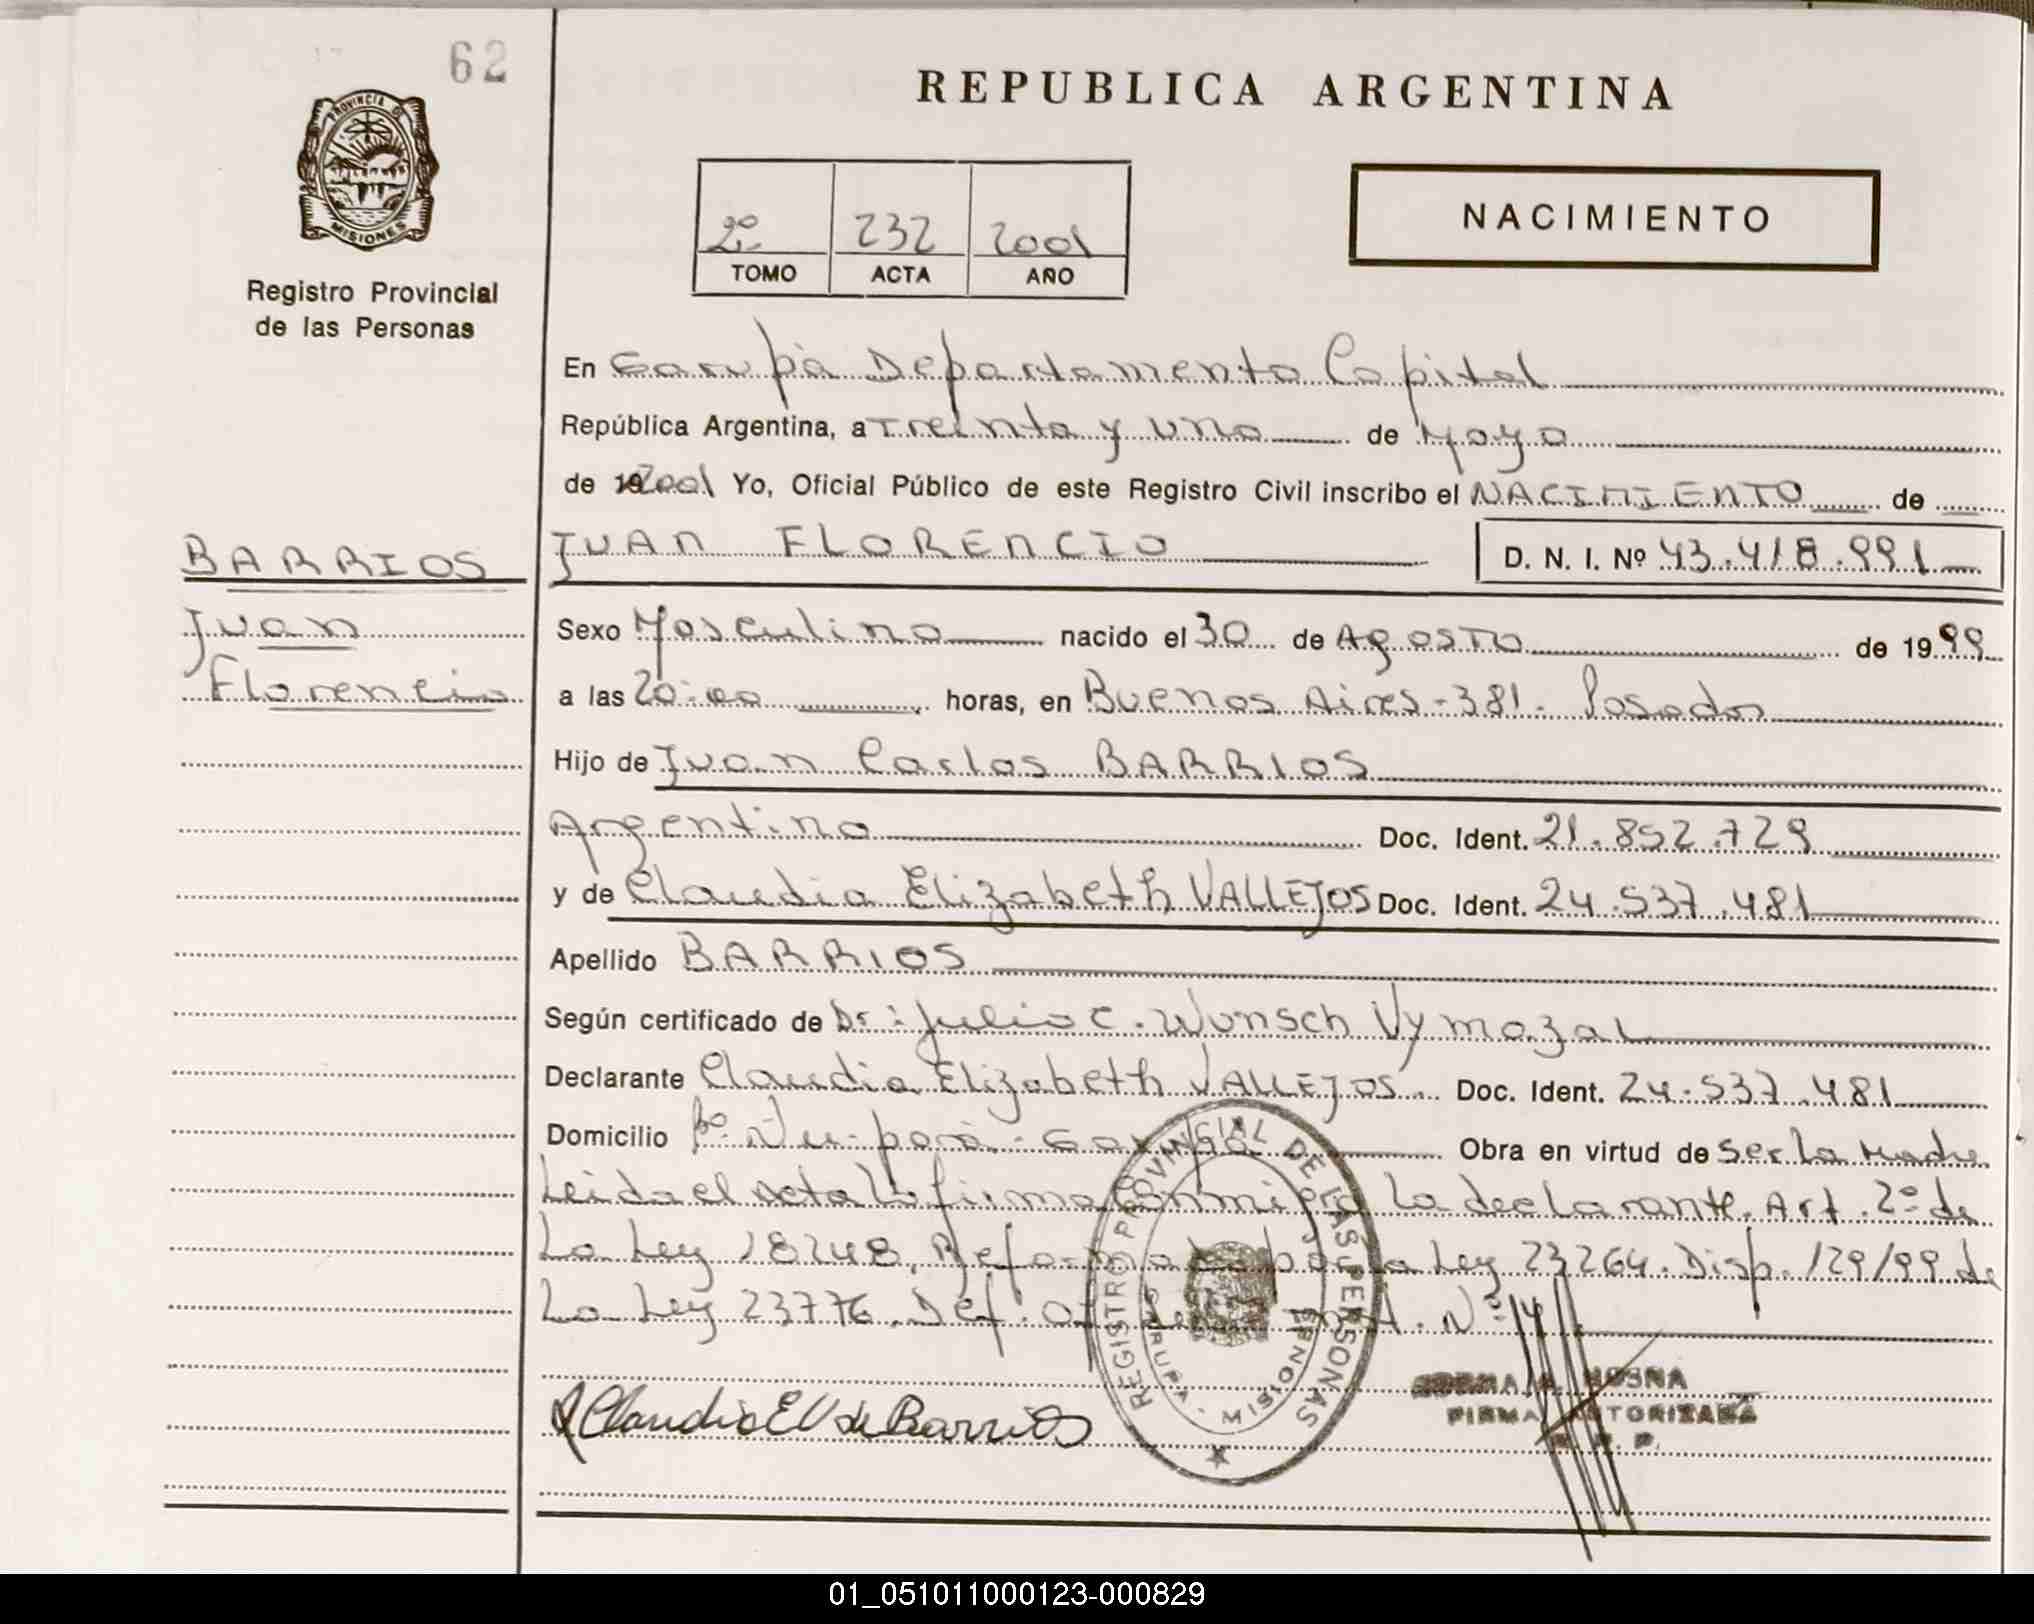 62
REPUBLICA ARGENTINA
PROVINCIA DE
MISIONES
Registro Provincial
de las Personas
2º 232 2001
TOMO ACTA AÑO
NACIMIENTO
En Garupá Departamento Capital
República Argentina, a Treinta y uno de Mayo
de 192001 Yo, Oficial Público de este Registro Civil inscribo el NACIMIENTO de
BARRIOS
Juan
Florencio
JUAN FLORENCIO D. N. I. Nº 43.418.991
Sexo Masculino nacido el 30 de Agosto de 1999
a las 20:00 horas, en Buenos Aires-381. Posadas
Hijo de Juan Carlos BARRIOS
Argentino Doc. Ident. 21.852.729
y de Claudia Elizabeth VALLEJOS Doc. Ident. 24.537.481
Apellido BARRIOS
Según certificado de Dr: Julio C. Wunsch Vymazal
Declarante Claudia Elizabeth VALLEJOS Doc. Ident. 24.537.481
Domicilio Bº Ñu-porá-Garupá Obra en virtud de Ser la Madre
Leida el Acta la firma conmigo la declarante. Art. 2º de
La Ley 18248, Reformada por la Ley 23264. Disp. 129/99 de
La Ley 23776. Def. Nº 14
Claudia E V de Barrios
REGISTRO PROVINCIAL DE LAS PERSONAS
GARUPA - MISIONES
NOSNA
FIRMA AUTORIZADA
R. P. P.
01_051011000123-000829